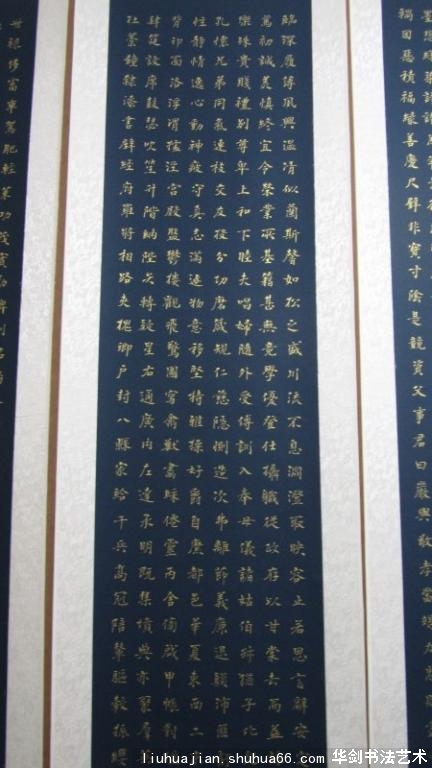 墨悲絲染詩讚羔
禍因惡積福緣善慶尺璧非寶寸陰是競資父事君曰嚴與敬孝當竭力忠
臨深履薄夙興溫清似蘭斯馨如松之盛川流不息淵澄取映容止若思言辭安定
篤初誠美慎終宜令榮業所基籍甚無竟學優登仕攝職從政存以甘棠去而益
樂殊貴賤禮別尊卑上和下睦夫唱婦隨外受傅訓入奉母儀諸姑伯叔猶子比
孔懷兄弟同氣連枝交友投分切磨箴規仁慈隱惻造次弗離節義廉退顛沛匪
性靜情逸心動神疲守真志滿逐物意移堅持雅操好爵自縻都邑華夏東西二
背邙面洛浮渭據涇宮殿盤鬱樓觀飛驚圖寫禽獸畫綵仙靈丙舍傍啟甲帳對
肆筵設席鼓瑟吹笙升階納陛弁轉疑星右通廣內左達承明既集墳典亦聚群英
杜藁鍾隸漆書壁經府羅將相路俠槐卿戶封八縣家給千兵高冠陪輦驅轂振纓
世祿侈富車駕肥輕策功茂實勒碑刻銘
liuhuajian.shuhua66.com 华剑书法艺术